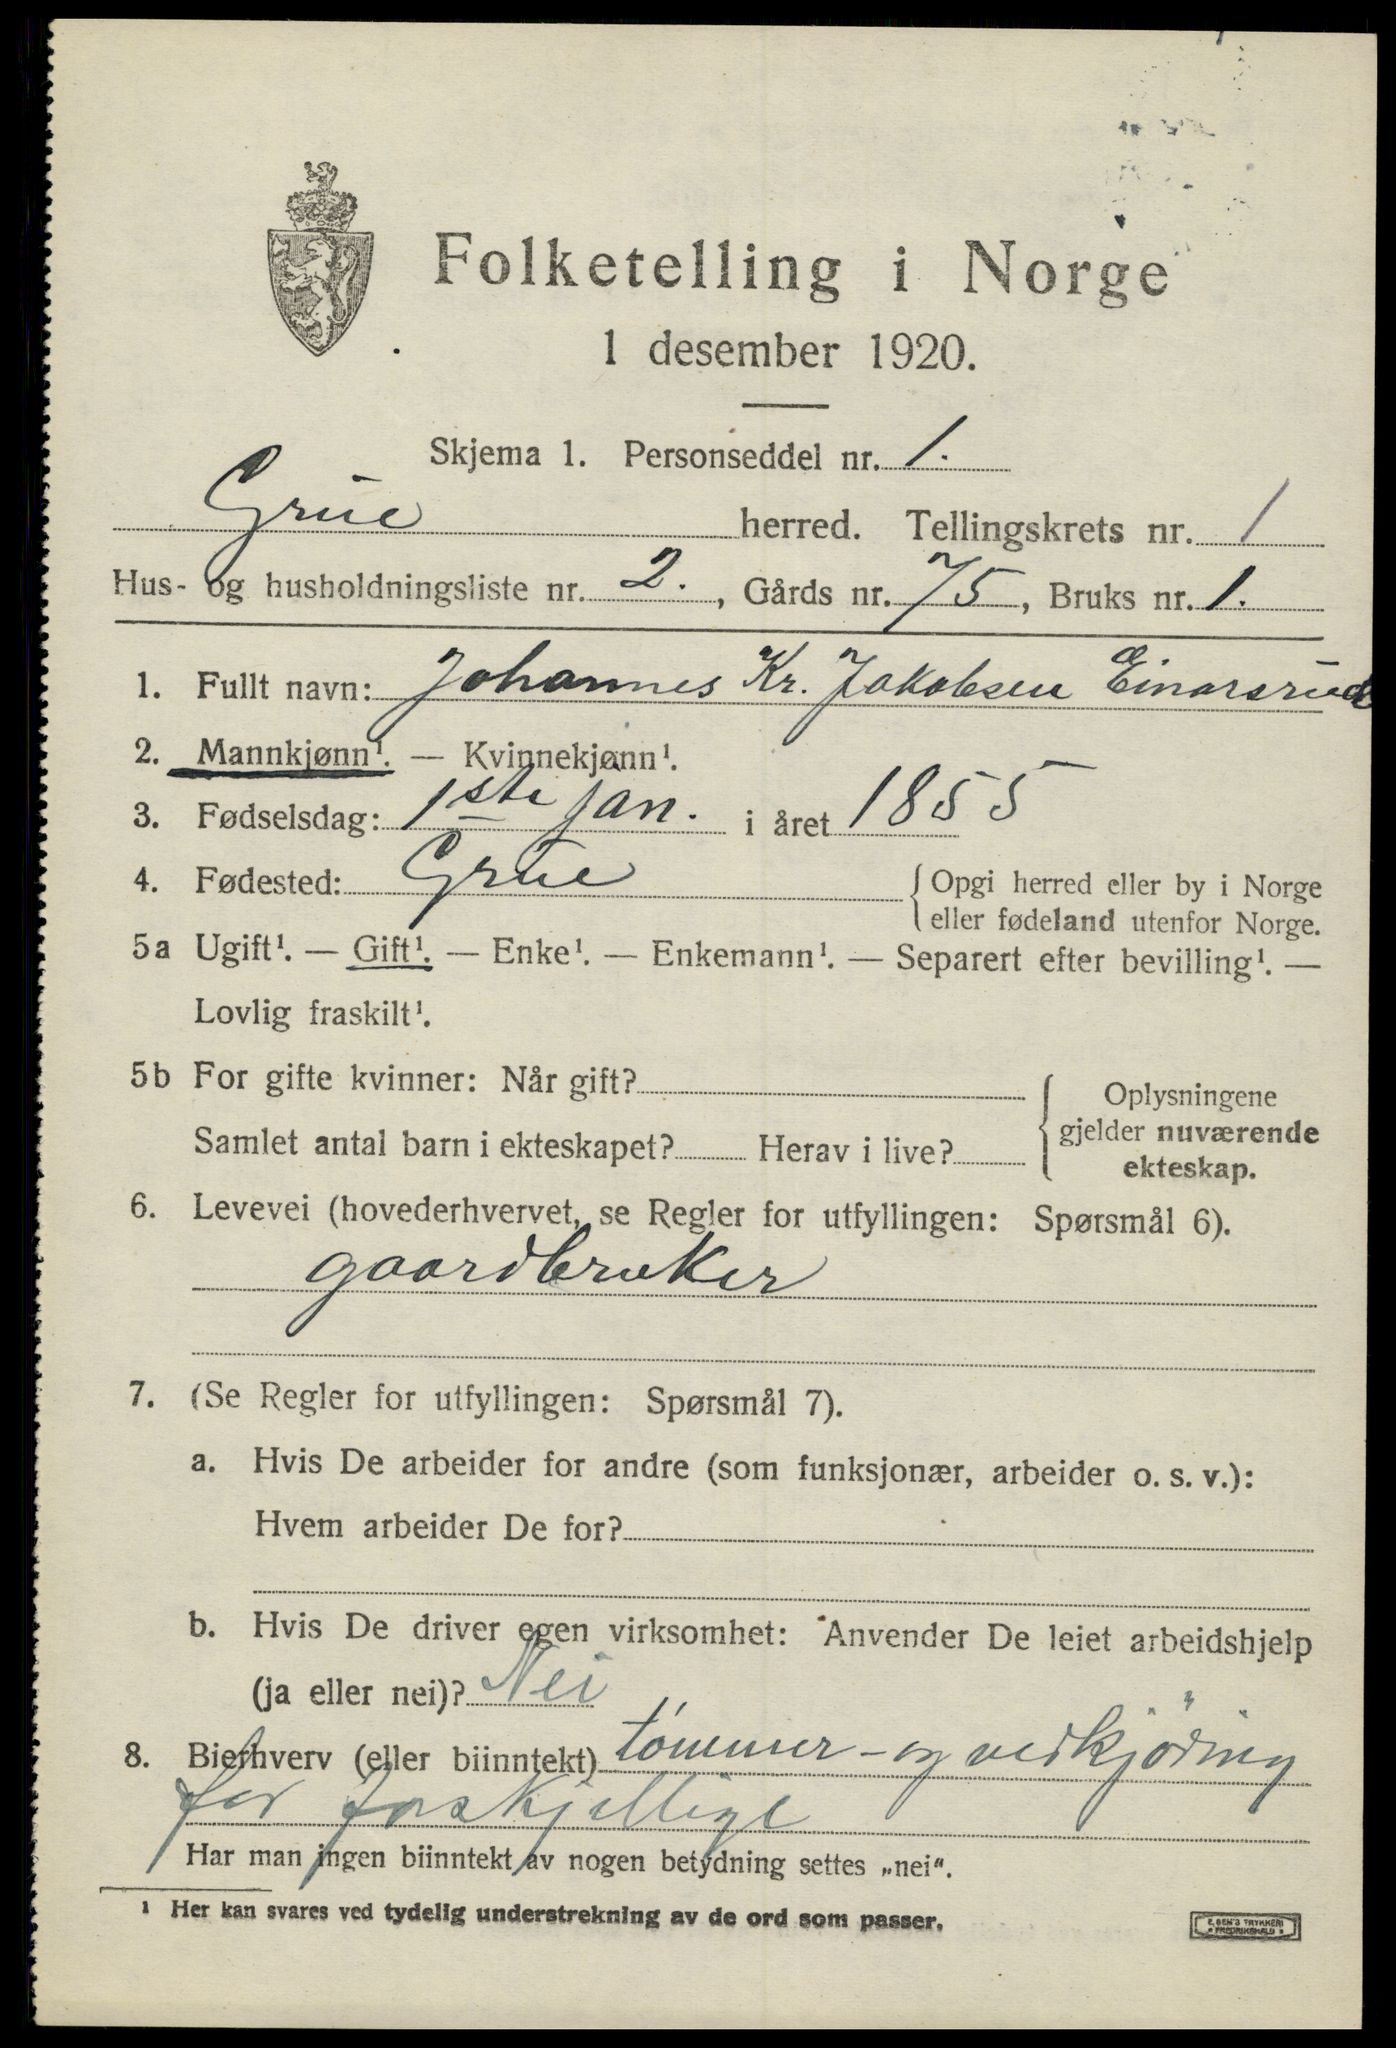 Folketelling i Norge
1 desember 1920.
Skjema 1. Personseddel nr. 1.
Grue herred. Tellingskrets nr. 1
Hus- og husholdningsliste nr. 2., Gårds nr. 75, Bruks nr. 1.
1. Fullt navn: Johannes Kr. Jakobsen Einarsrud
2. Mannkjønn¹. — Kvinnekjønn¹.
3. Fødselsdag: 1ste jan. i året 1855
4. Fødested: Grue { Opgi herred eller by i Norge
eller fødeland utenfor Norge.
5a Ugift¹. — Gift¹. — Enke¹. — Enkemann¹. — Separert efter bevilling¹. —
Lovlig fraskilt¹.
5b For gifte kvinner: Når gift? { Oplysningene
gjelder nuværende
Samlet antal barn i ekteskapet? Herav i live?
ekteskap.
6. Levevei (hovederhvervet, se Regler for utfyllingen: Spørsmål 6).
gaardbruker
7. (Se Regler for utfyllingen: Spørsmål 7).
a. Hvis De arbeider for andre (som funksjonær, arbeider o. s. v.):
Hvem arbeider De for?
b. Hvis De driver egen virksomhet: Anvender De leiet arbeidshjelp
(ja eller nei)? Nei
8. Bierhverv (eller biinntekt) tömmer- og vedkjöring
for forskjellige
Har man ingen biinntekt av nogen betydning settes „nei“.
¹ Her kan svares ved tydelig understrekning av de ord som passer.
E. SEM'S TRYKKERI
FREDRIKSHALD